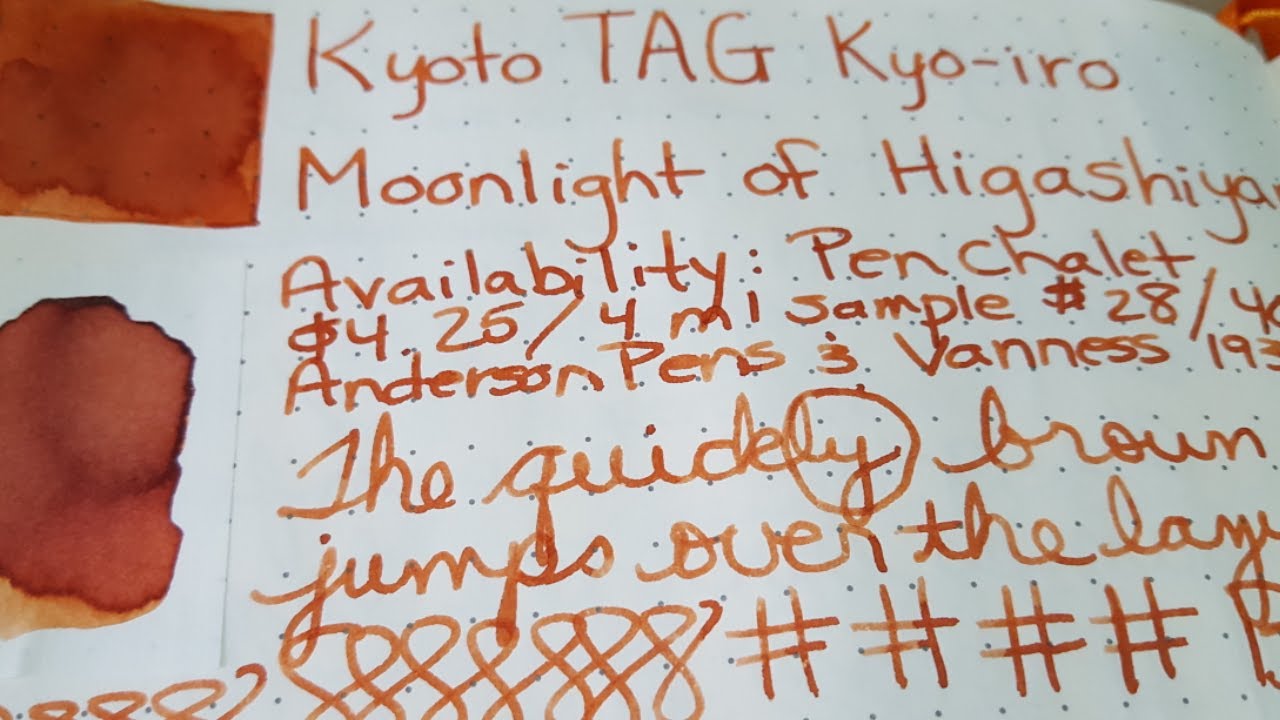 Kyoto TAG Kyo-iro
Moonlight of Higashiya
Availability: Pen Chalet
$4.25/4 ml sample $28/40
Anderson Pens & Vanness 193
The quickly brown
jumps over the lazy
# # # #